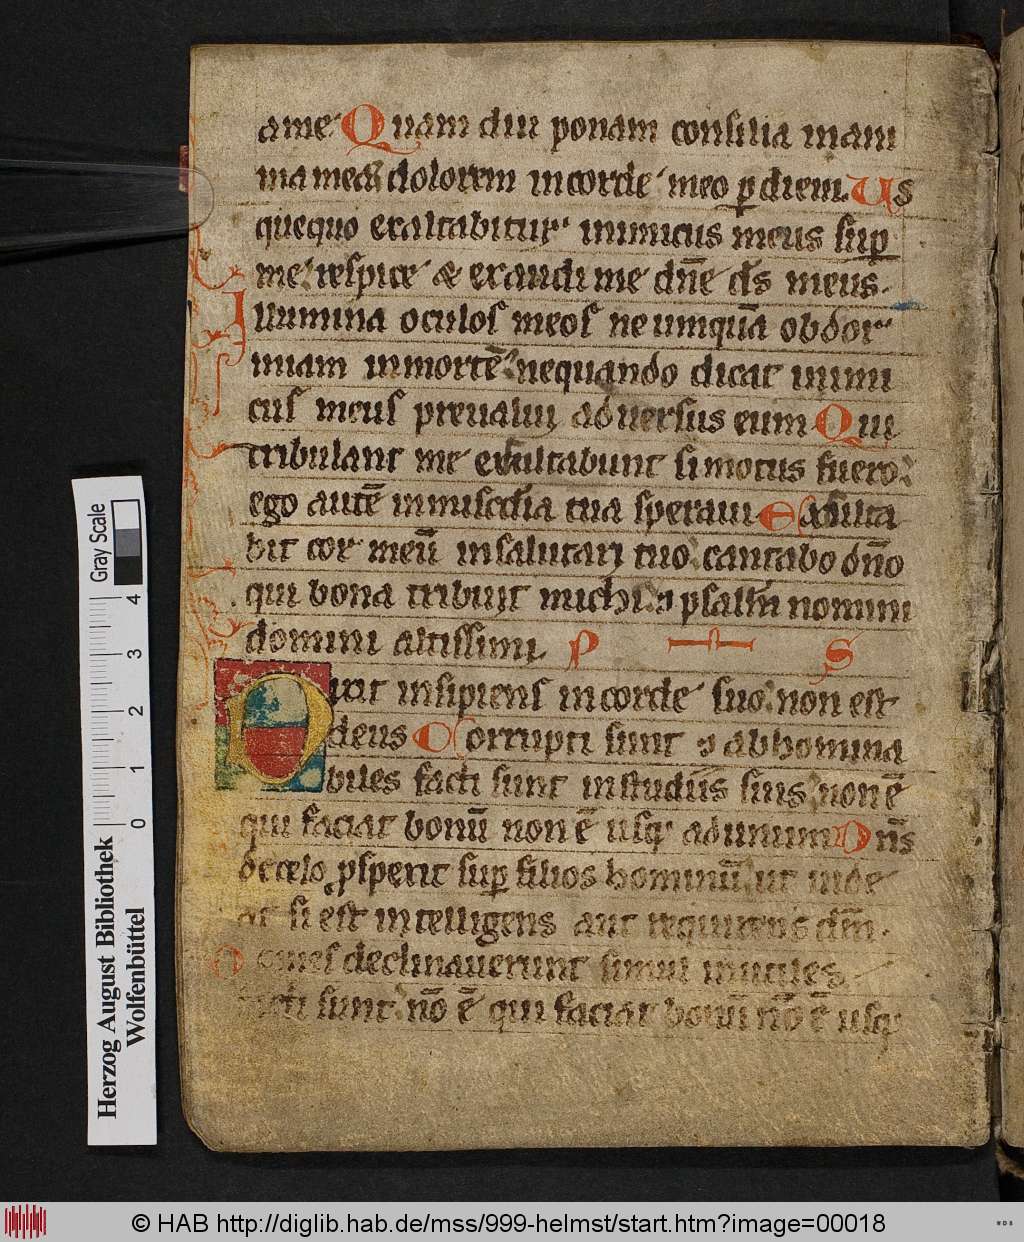 ame Quam diu ponam consilia in ani
ma mea dolorem in corde meo p diem. Us
quequo exaltabitur inimicus meus sup
me respice & exaudi me dñe ds meus.
Illumina oculos meos ne umquā obdor
miam in mortē nequando dicat inimi
cus meus preualui aduersus eum Qui
tribulant me exultabunt si motus fuero
ego autē in miscdia tua speraui Exulta
bit cor meū in salutari tuo cantabo dño
qui bona tribuit michi ⁊ psallm nomini
domini altissimi P S
Dixit insipiens in corde suo non est
deus Corrupti sunt ⁊ abhomina
biles facti sunt in studiis suis non ē
qui faciat bonū non ē usq ad unum Dñs
de celo pspexit sup filios hominū ut uide
at si est intelligens aut requirens dm̄.
Omnes declinauerunt simul inutiles
facti sunt nō ē qui faciat bonū nō ē usq
Gray Scale
4
3
2
1
0
Herzog August Bibliothek
Wolfenbüttel
© HAB http://diglib.hab.de/mss/999-helmst/start.htm?image=00018